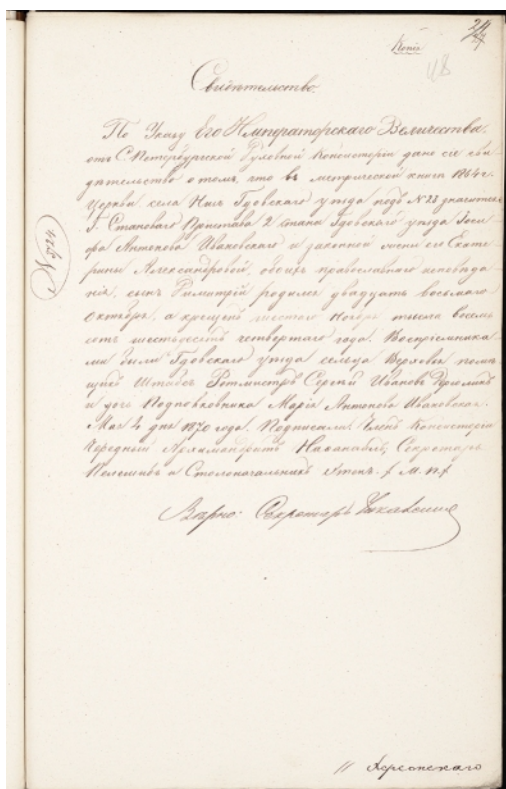 Копія
Свидѣтельство.
По Указу Его Императорскаго Величества,
отъ С.Петербургской Духовной Консисторіи дано сіе сви-
дѣтельство о томъ, что въ метрической книгѣ 1864 г.
Церкви села Гдовскаго уѣзда подъ №28 значится:
Г. Становаго Пристава 2 стана Гдовскаго уѣзда Іоси-
фа Антонова Ивановскаго и законной жены его Екате-
рины Александровой, обоихъ православнаго исповѣда-
нія, сынъ Димитрій родился двадцать восьмаго
Октября, а крещенъ шестаго Ноября тысяча восемь
сотъ шестьдесятъ четвертаго года. Воспріемника-
ми были Гдовскаго уѣзда сельца Верховья помѣ-
щикъ Штабсъ Ротмистръ Сергѣй Ивановъ
и дочь Подполковника Марія Антонова Ивановская.
Мая 4 дня 1870 года. Подписали: Членъ Консисторіи
Чередный Архимандритъ Секретарь
и Столоначальникъ М. П.
Вѣрно: Секретарь
Херсонскаго